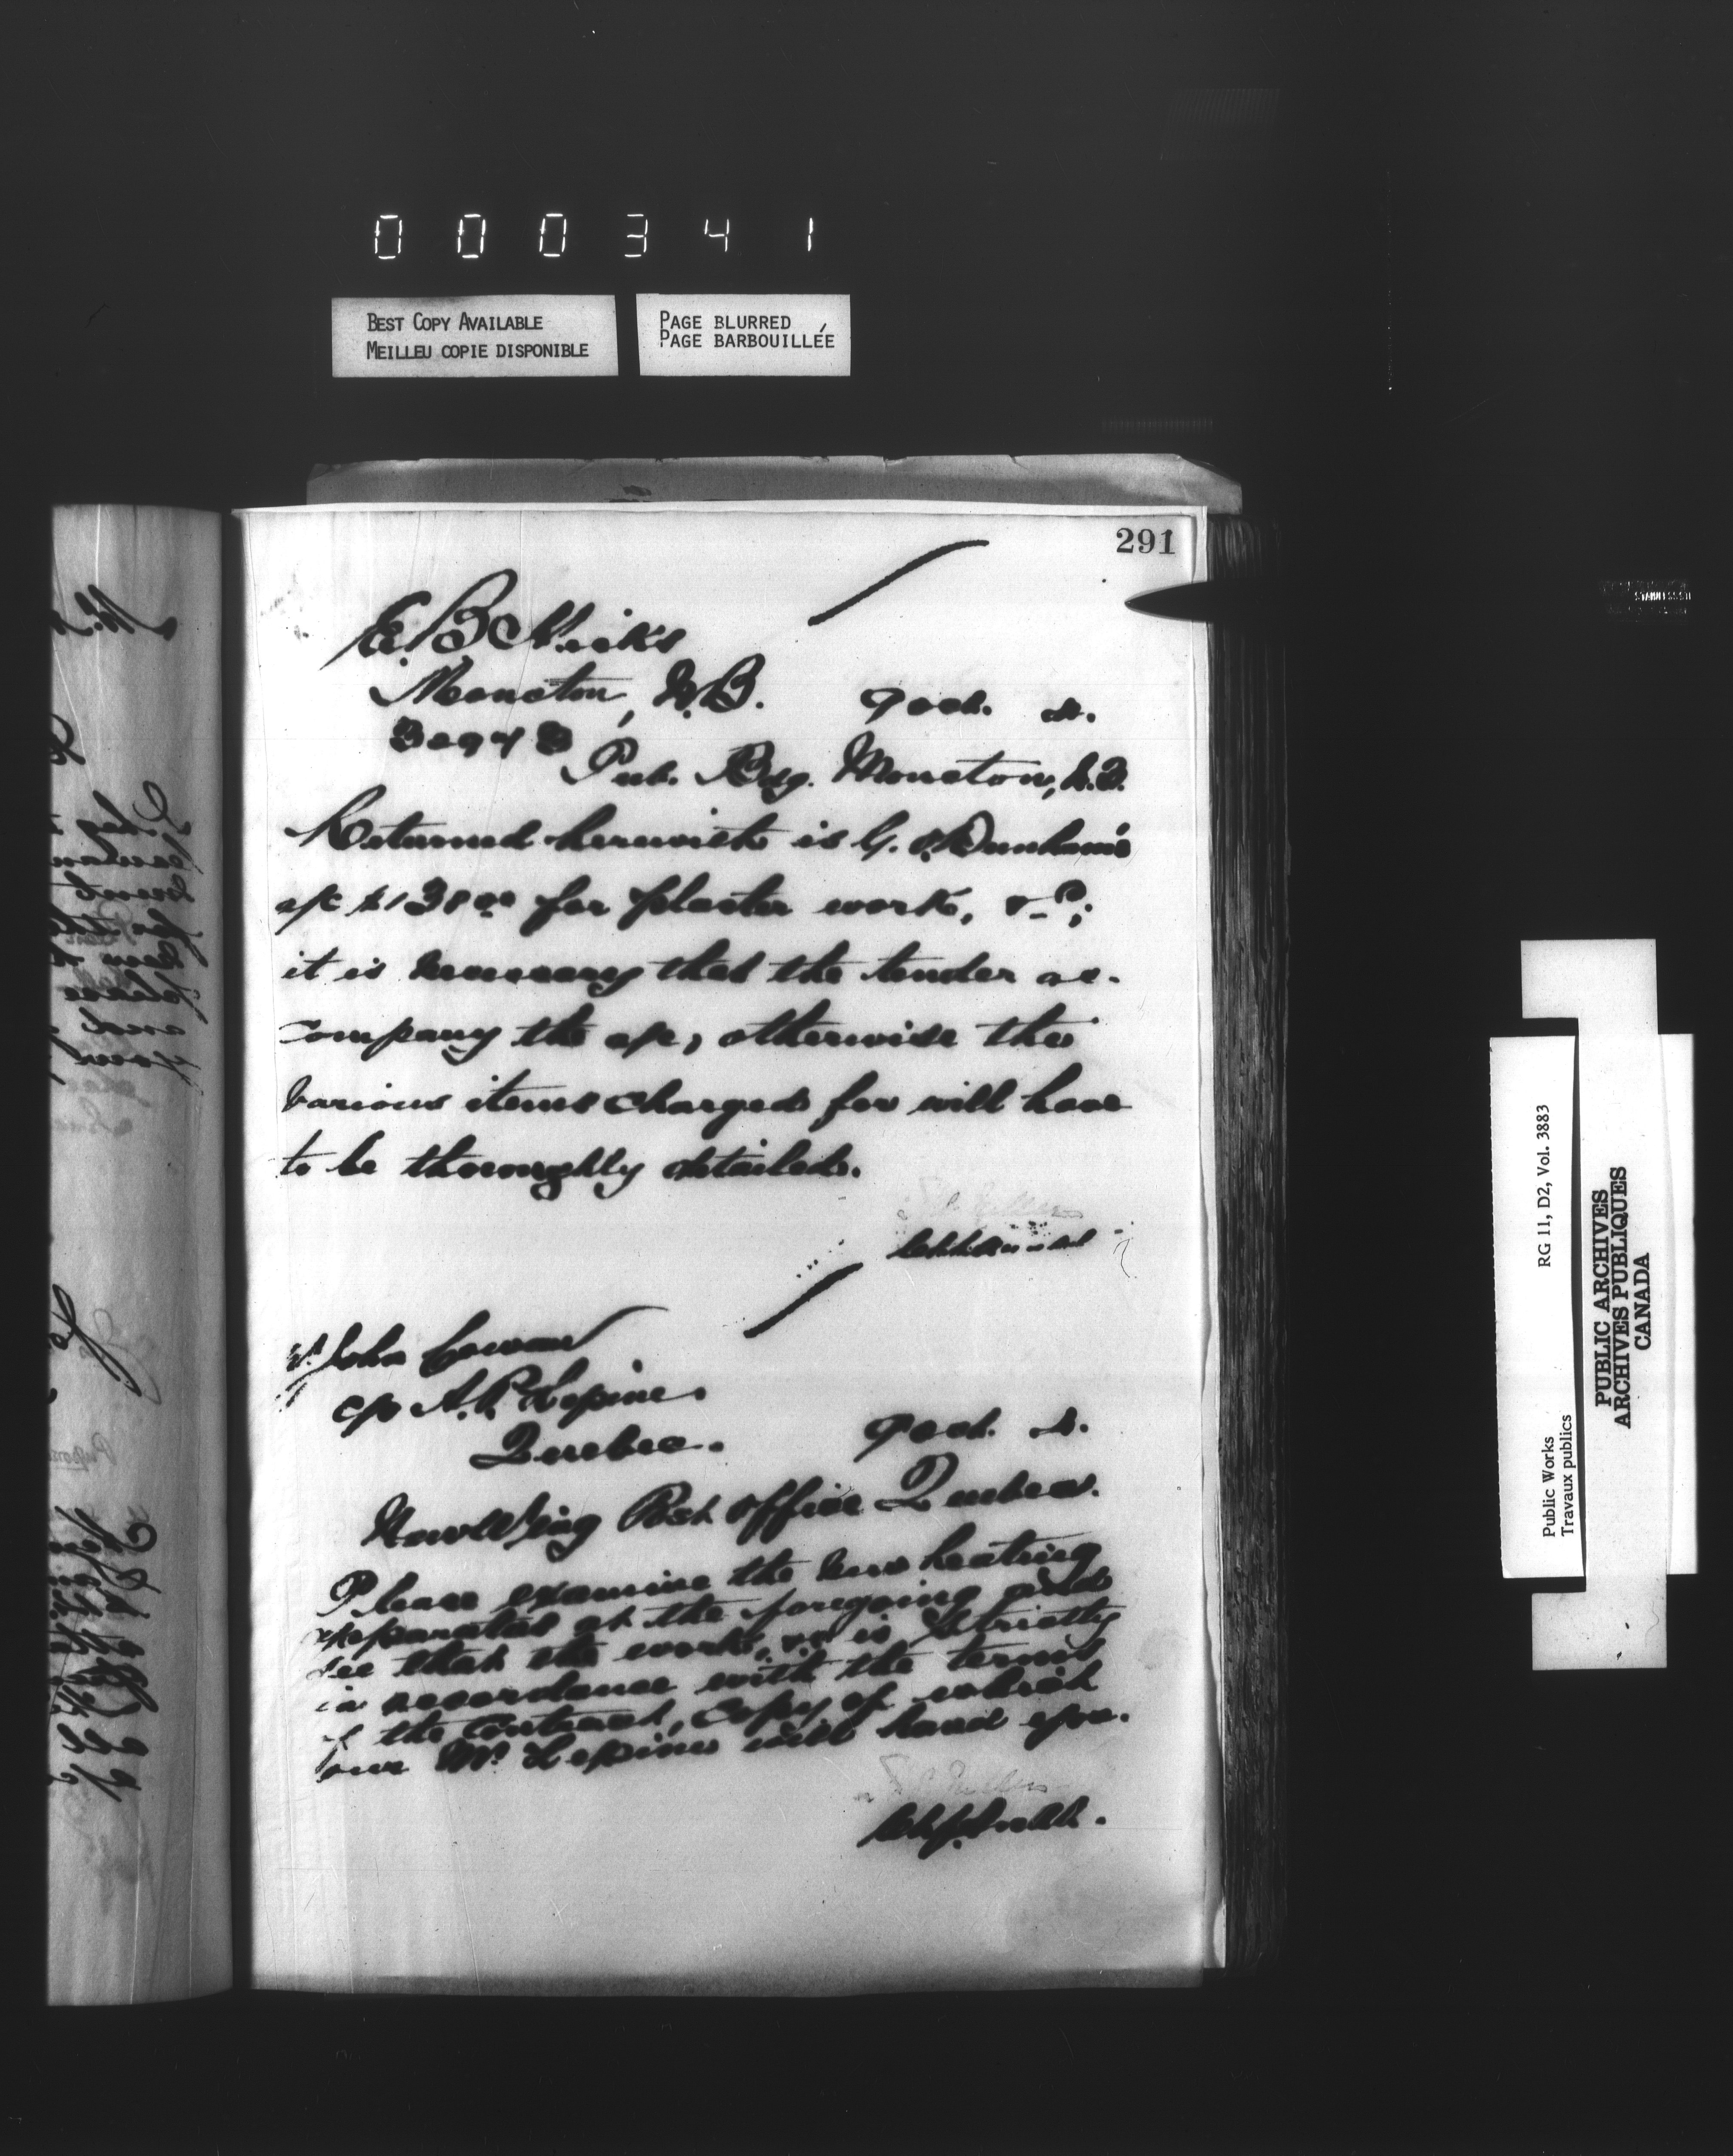 000341
BEST COPY AVAILABLE
MEILLEU COPIE DISPONIBLE
PAGE BLURRED
PAGE BARBOUILLÉE
291
E. B.
Moncton, N.B. 9 Oct.
Pub. Bdg. Moncton, N.B.
Returned herewith is G. Dunham's
a/c $138.00 for plaster work, &c;
it is necessary that the tender ac-
company the a/c, otherwise the
various items charged for will have
to be thoroughly detailed.
John Cowan
c/o A. P. Lepine.
Quebec. 9 Oct.
New Wing Post Office Quebec.
Please examine the new heating
apparatus at the foregoing and
see that the work, &c is strictly
in accordance with the terms
of the contract, copy of which
our Mr. Lepine will hand you.
Public Works
Travaux publics
RG 11, D2, Vol. 3883
PUBLIC ARCHIVES
ARCHIVES PUBLIQUES
CANADA